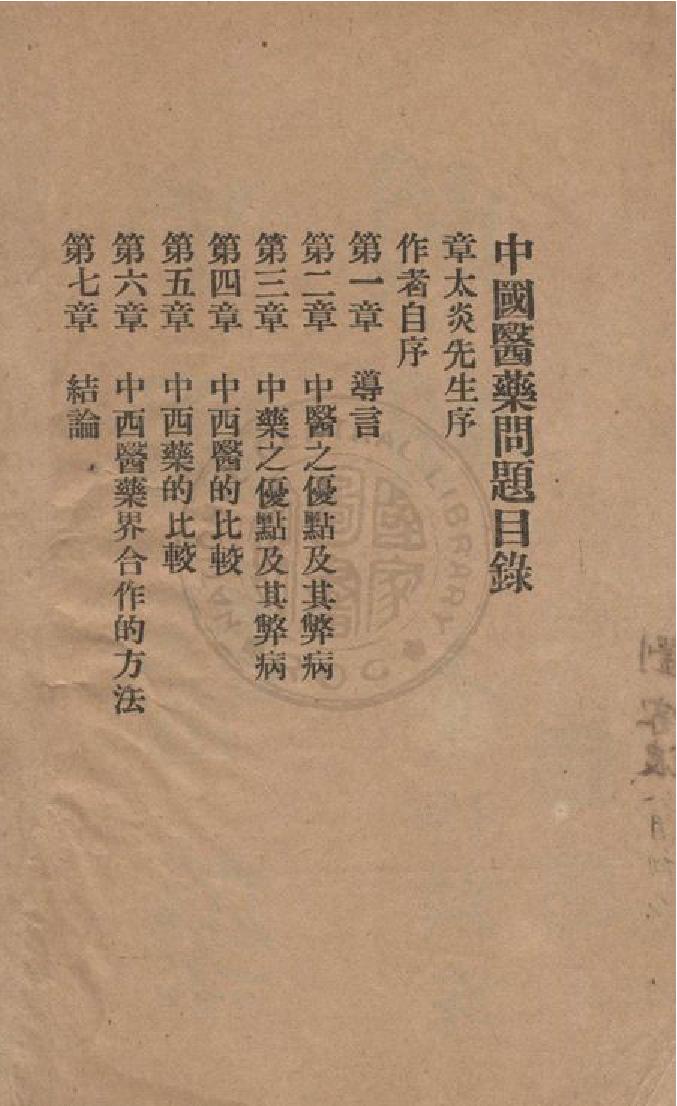 中國醫藥問題目錄
章太炎先生序
作者自序
第一章 導言
第二章 中醫之優點及其弊病
第三章 中藥之優點及其弊病
第四章 中西醫的比較
第五章 中西藥的比較
第六章 中西醫藥界合作的方法
第七章 結論
國家圖書館
NATIONAL LIBRARY